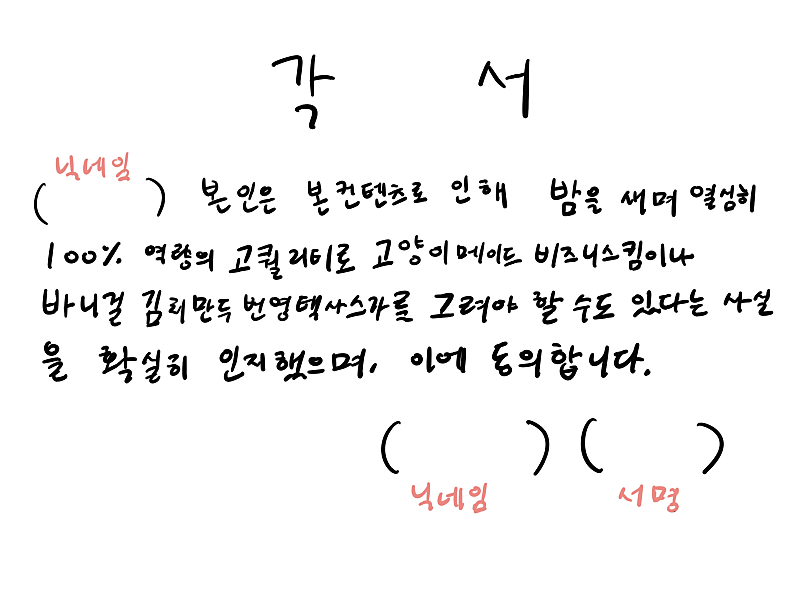 각 서
닉네임
( ) 본인은 본컨텐츠로 인해 밤을 새며 열심히
100% 역량의 고퀄리티로 고양이메이드 비즈니스킴이나
바니걸 김리만두번영택사스가를 그려야 할 수도 있다는 사실
을 확실히 인지했으며, 이에 동의합니다.
( ) ( )
닉네임 서명